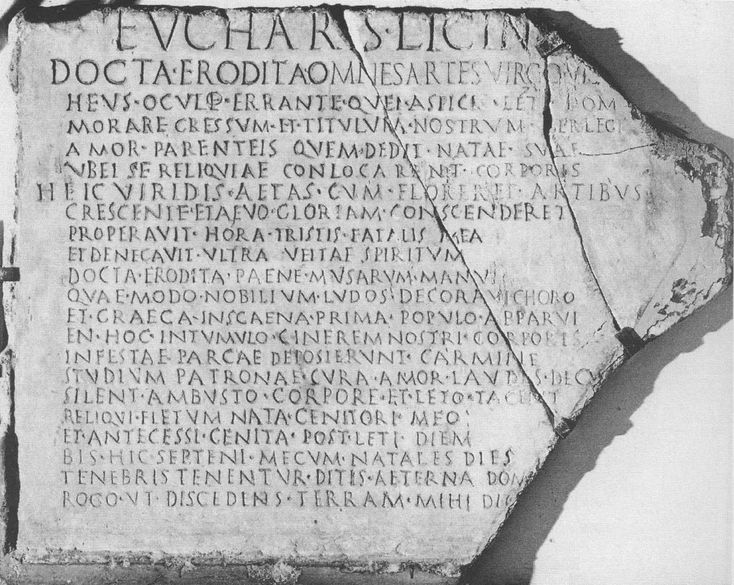 EVCHARIS · LICIN
DOCTA · ERODITA · OMNES · ARTES · VIRGO
HEVS · OCVLO · ERRANTE · QVEI · ASPICI LETI DOM
MORARE GRESSVM · ET · TITVLVM · NOSTRVM PERLEGE
AMOR · PARENTEIS QVEM · DEDIT · NATAE · SVAE
VBEI SE RELIQVIAE CONLOCARENT CORPORIS
HEIC VIRIDIS · AETAS · CVM FLORERET ARTIBVS
CRESCENTE · ET AEVO · GLORIAM CONSCENDERET
PROPERAVIT · HORA · TRISTIS · FATALIS MEA
ET DENEGAVIT · VLTRA · VEITAE SPIRITVM
DOCTA · ERODITA · PAENE · MVSARVM · MANV
QVAE · MODO · NOBILIVM · LVDOS DECORAVI CHORO
ET · GRAECA · IN SCAENA · PRIMA · POPVLO · APPARVI
EN · HOC · IN TVMVLO · CINEREM NOSTRI · CORPORIS
INFESTAE · PARCAE DEPOSIERVNT · CARMINE
STVDIVM PATRONAE CVRA · AMOR · LAVDES · DECV
SILENT · AMBVSTO · CORPORE · ET · LETO · TACENT
RELIQVI · FLETVM NATA · GENITORI MEO
ET · ANTECESSI · GENITA · POST · LETI DIEM
BIS · HIC · SEPTENI · MECVM · NATALES DIES
TENEBRIS TENENTVR · DITIS · AETERNA DOM
ROGO · VT DISCEDENS · TERRAM · MIHI DIC